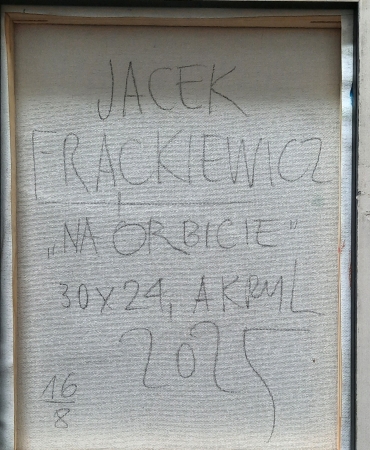 JACEK
FRĄCKIEWICZ
„NA ORBICIE”
30X24, AKRYL
2025
16/8